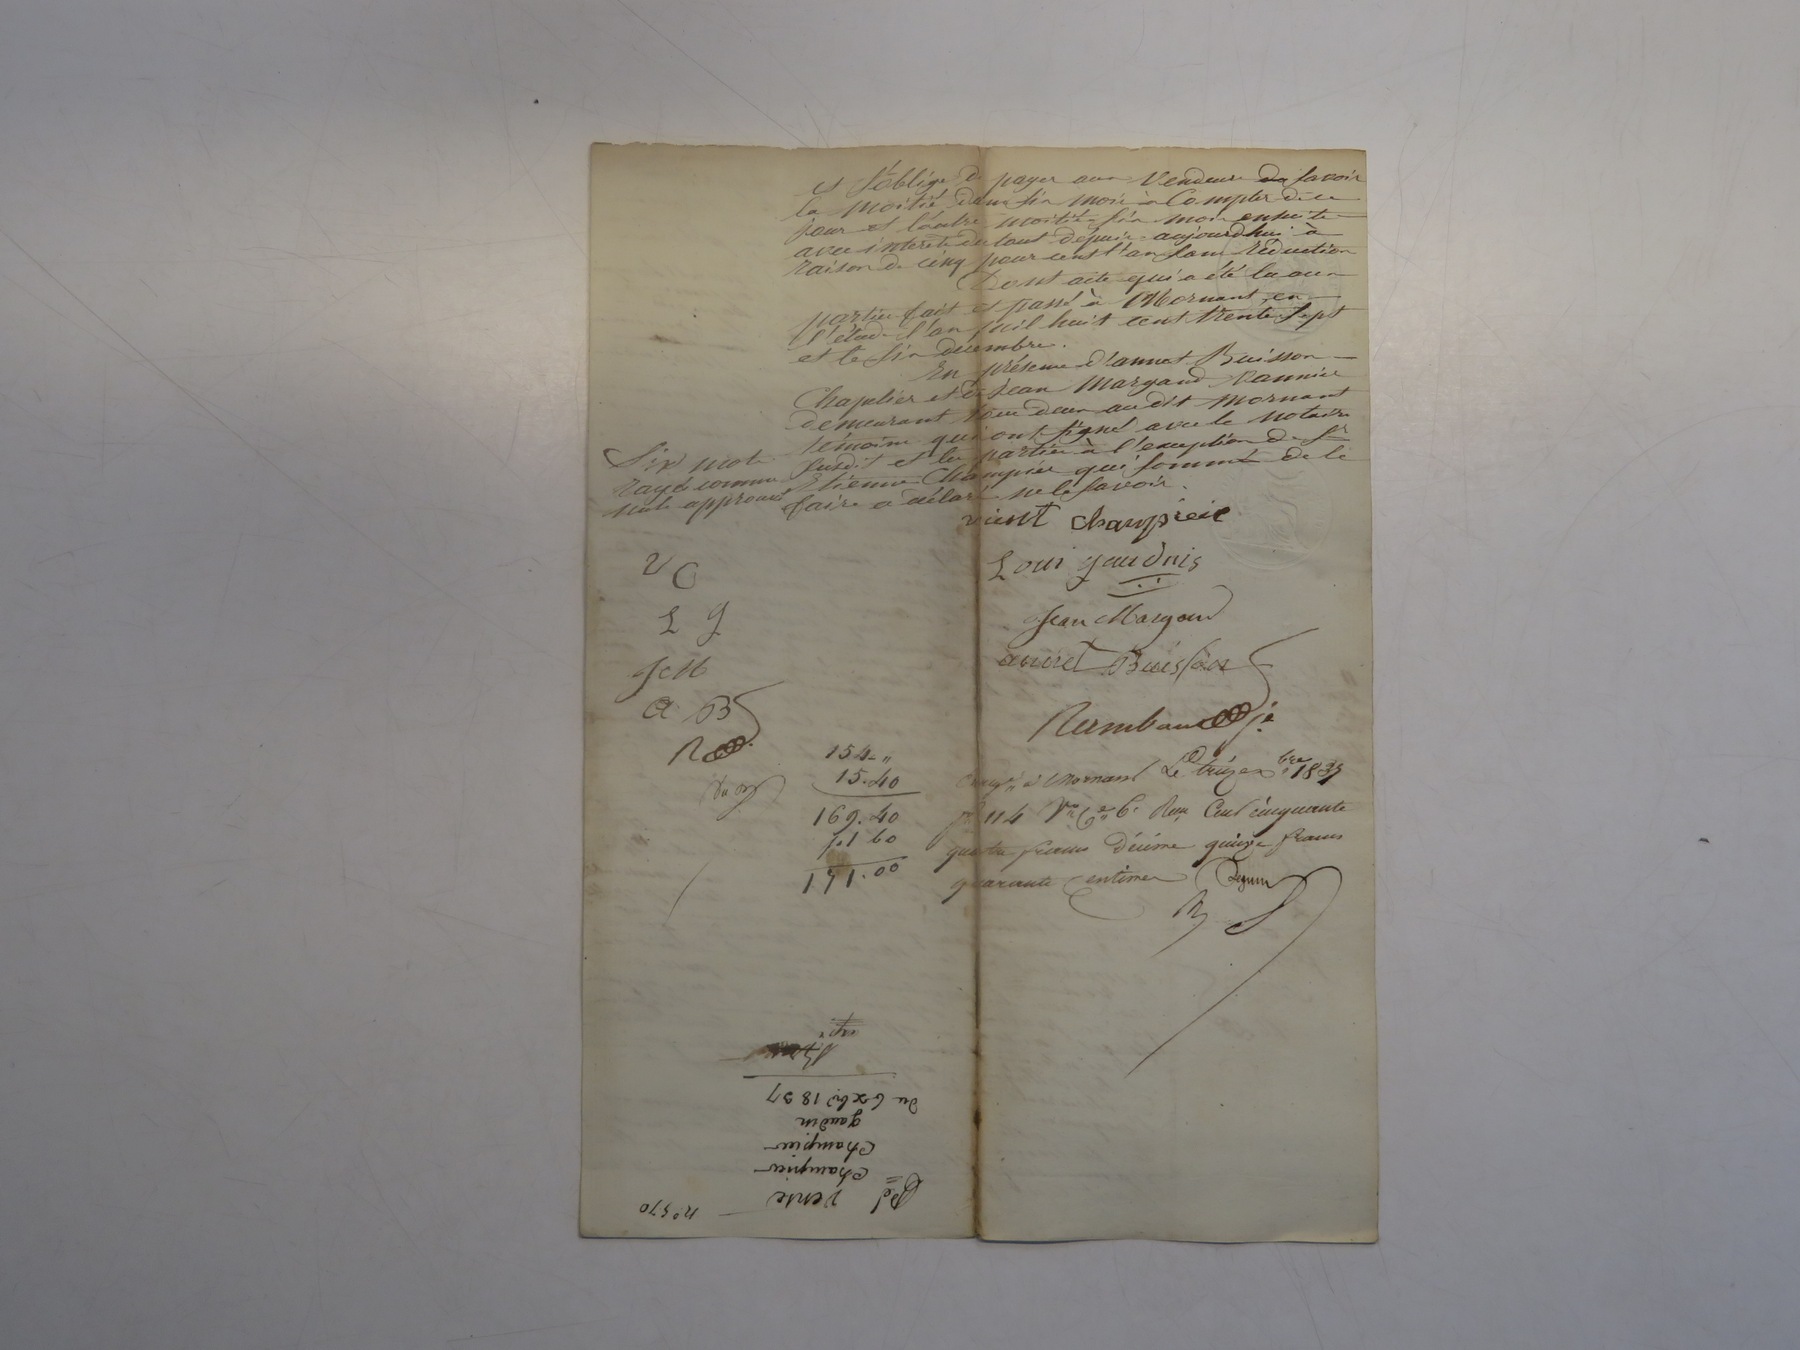 et s'oblige de payer aux vendeurs da savoir
la moitié dans six mois a Compter de ce
jour et l'autre moitié six mois ensuite
avec intérêt du tout depuis aujourdhui à
raison de cinq pour cent l'an sans réduction
Dont acte qui a été lu aux
parties fait et passé à Mornant en
l'étude l'an mil huit cent trente sept
et le six décembre.
En présence d'annet Buisson
Chapelier et de Jean Margand Vannier
demeurant tous deux au dit Mornant
témoins qui ont signé avec le notaire
susdit et les parties à l'exception de Sr
Etienne Champier qui sommé de le
faire a déclaré ne le savoir.
Six mots
rayés comme
nuls approuvés
vient champier
Loui gaudnis
Jean Margand
annet Buisson
V C
L G
J M
a B
154 "
15.40
169.40
1 60
171.00
Enregé à Mornant Le treize xbre 1837
fo 114 Vo Ce 6. Reçu Cent cinquante
quatre francs décime quinze francs
quarante centimes
no 570
Vente
Champier
Champier
gaudin
du 6 xbre 1837